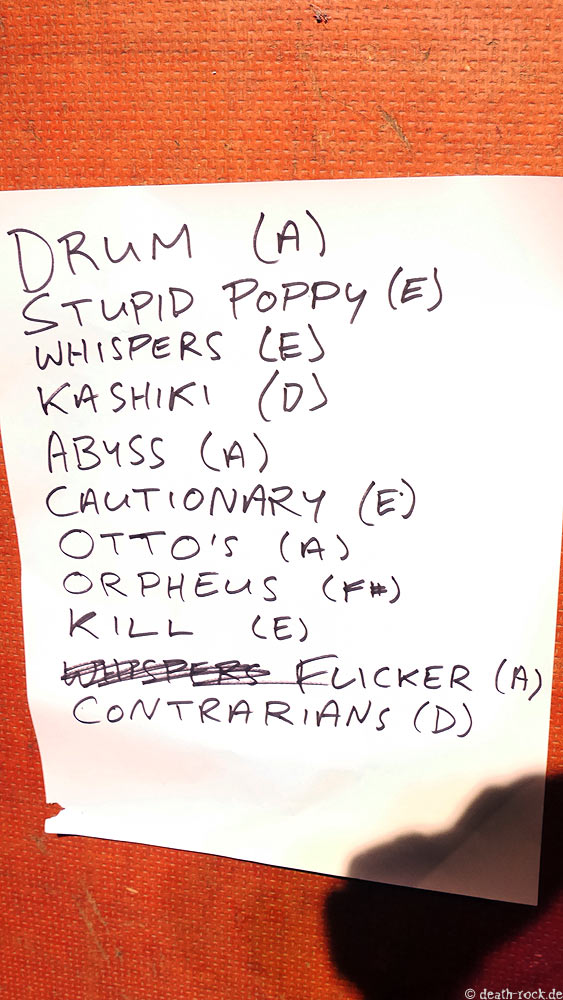 DRUM (A)
STUPID POPPY (E)
WHISPERS (E)
KASHIKI (D)
ABYSS (A)
CAUTIONARY (E)
OTTO'S (A)
ORPHEUS (F#)
KILL (E)
WHISPERS FLICKER (A)
CONTRARIANS (D)
© death-rock.de